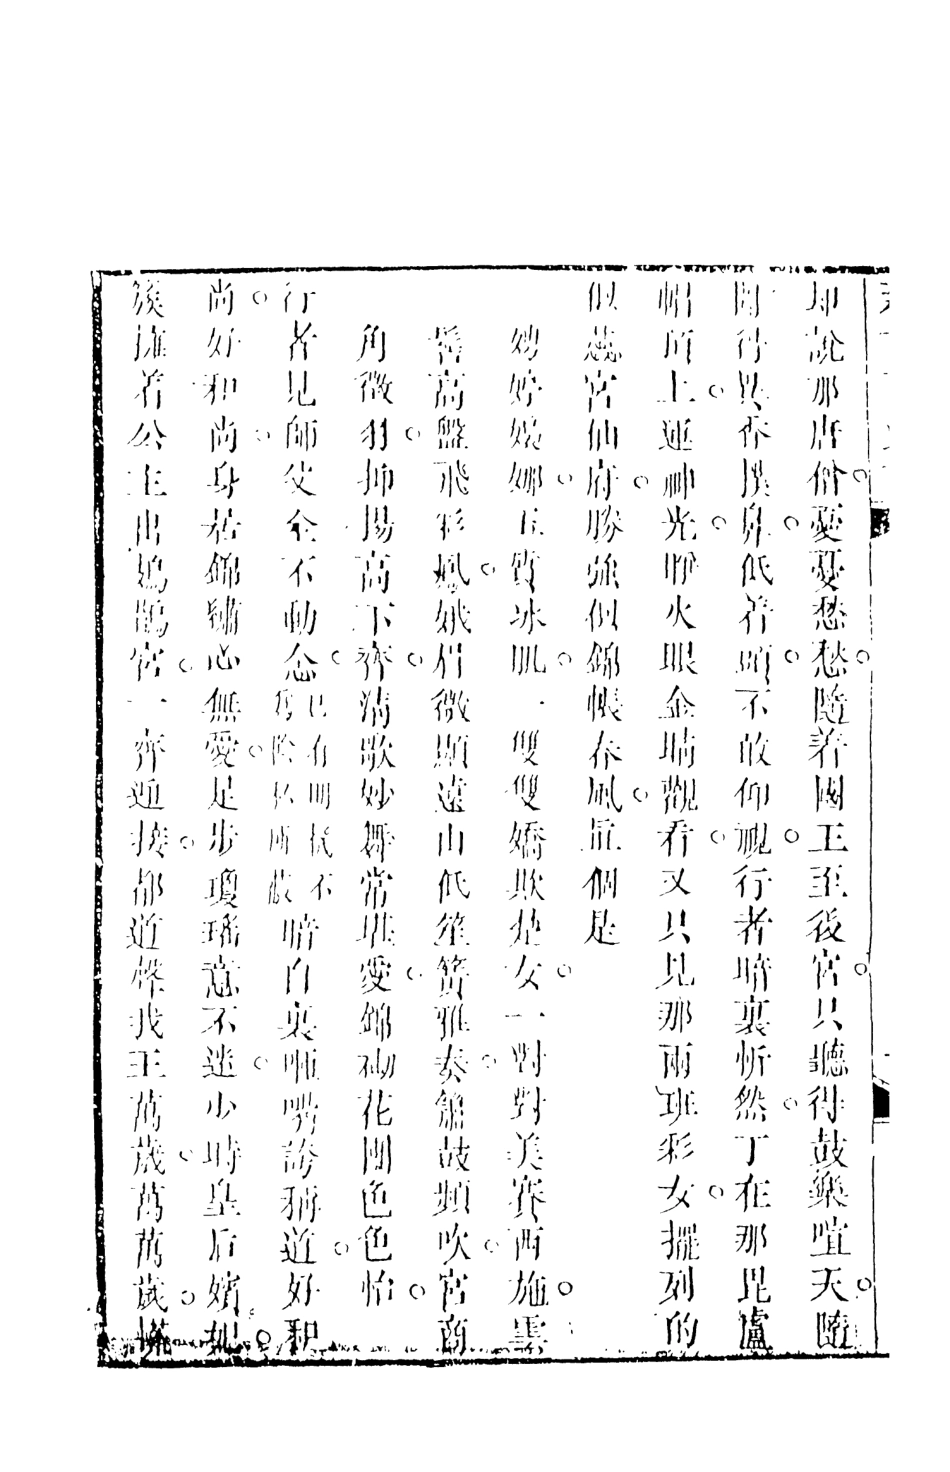 却說那唐僧憂憂愁愁隨着國王至後宮只聽得鼓樂喧天隨
聞得異香撲鼻低着頭不敢仰視行者暗裏忻然丁在那毘盧
帽頂上運神光睜火眼金睛觀看又只見那兩班彩女擺列的
似蕊宮仙府勝強似錦帳春風眞個是
娉婷嬝娜玉質冰肌一雙雙嬌欺楚女一對對美賽西施雲
髻高盤飛彩鳳娥眉微顯遠山低笙簧雅奏簫鼓頻吹宮商
角徵羽抑揚高下齊清歌妙舞常堪愛錦砌花團色色怡
行者見師父全不動念
已有明抵不
爲陰私所蔽
暗自裏咂嘴誇稱道好和
尚好和尚身居錦繡心無愛足步瓊瑤意不迷少時皇后嬪妃
簇擁着公主出鳷鵲宮一齊迎接都道聲我王萬歲萬萬歲慌